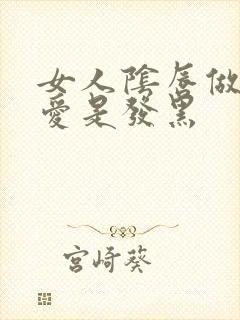 女人陰唇做
愛是發黑
宮崎葵